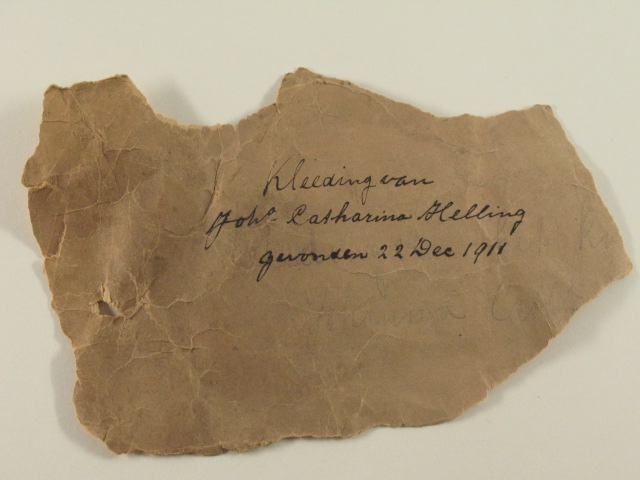 Kleeding van
Joha Catharina Helling
gevonden 22 Dec 1911
Johanna